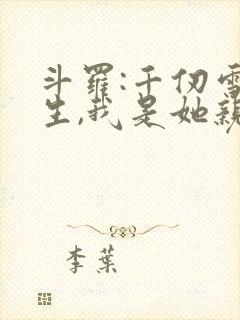 斗羅:千仞雪
生,我是她親
李葉